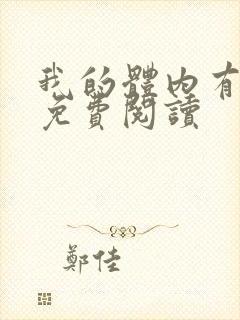 我的體内有
免費閱讀
鄭佳